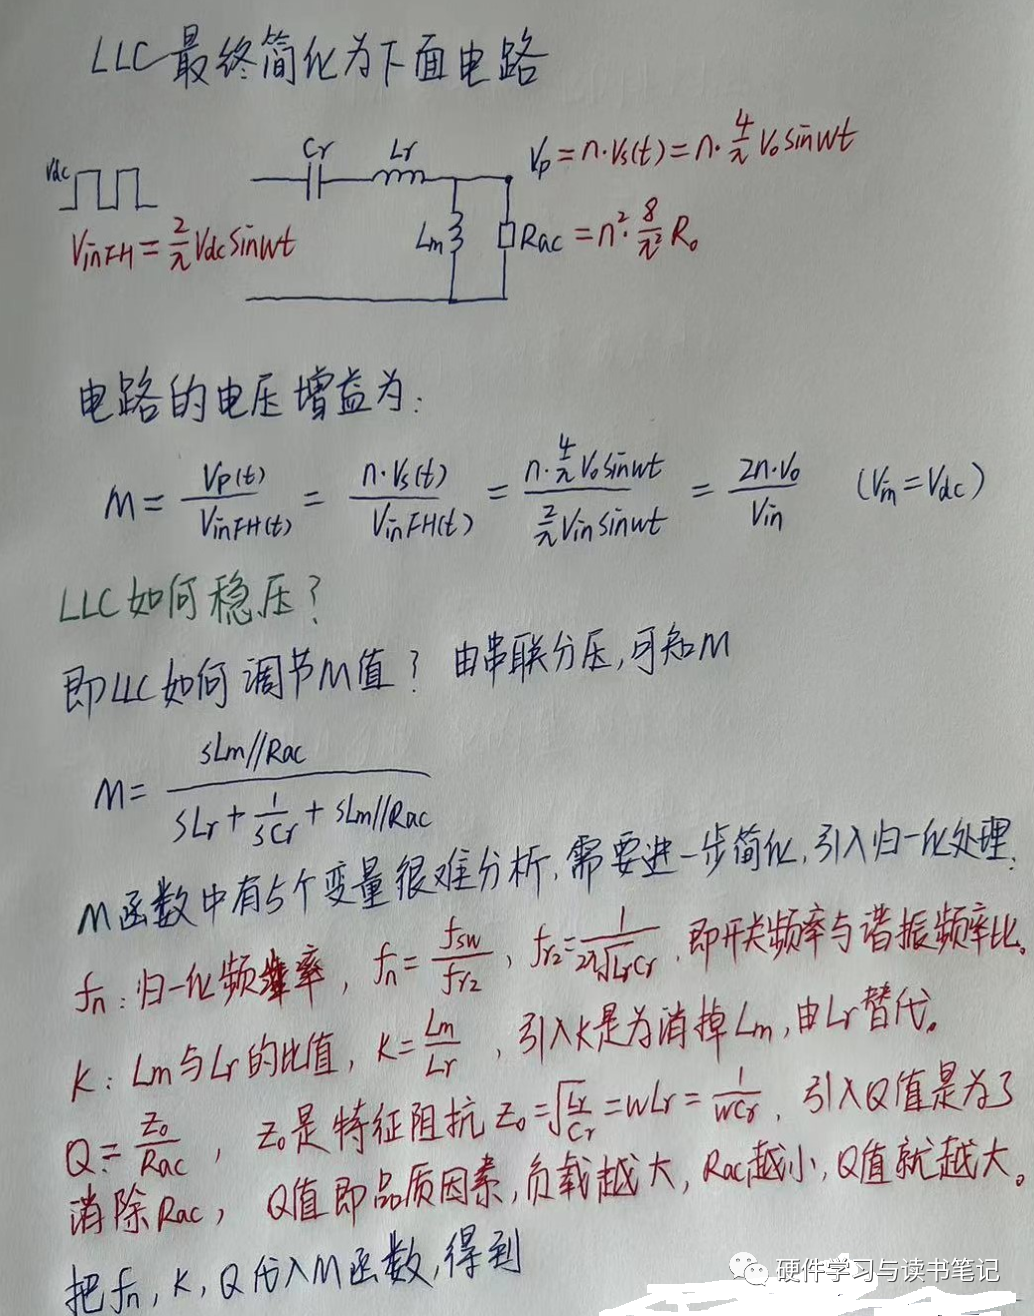 LLC最终简化为下面电路
Vdc
VinFH=2/π Vdc sinwt
Cr
Lr
Lm
Vp=n·Vs(t)=n·4/π Vo sinwt
Rac=n²·8/π² Ro
电路的电压增益为:
M=Vp(t)/VinFH(t)=n·Vs(t)/VinFH(t)=n·4/π Vo sinwt/2/π Vin sinwt=2n·Vo/Vin (Vin=Vdc)
LLC如何稳压?
即LLC如何调节M值? 由串联分压,可知M
M=sLm//Rac/sLr+1/sCr+sLm//Rac
M函数中有5个变量很难分析,需要进一步简化,引入归一化处理.
fn:归一化频率, fn=fsw/fr2、fr2=1/2π√LrCr.即开关频率与谐振频率比。
K:Lm与Lr的比值, K=Lm/Lr, 引入K是为消掉Lm,由Lr替代。
Q=Zo/Rac, Zo是特征阻抗Zo=√Lr/Cr=wLr=1/wCr. 引入Q值是为了
消除Rac, Q值即品质因素,负载越大,Rac越小,Q值就越大。
把fn,K,Q代入M函数,得到
硬件学习与读书笔记